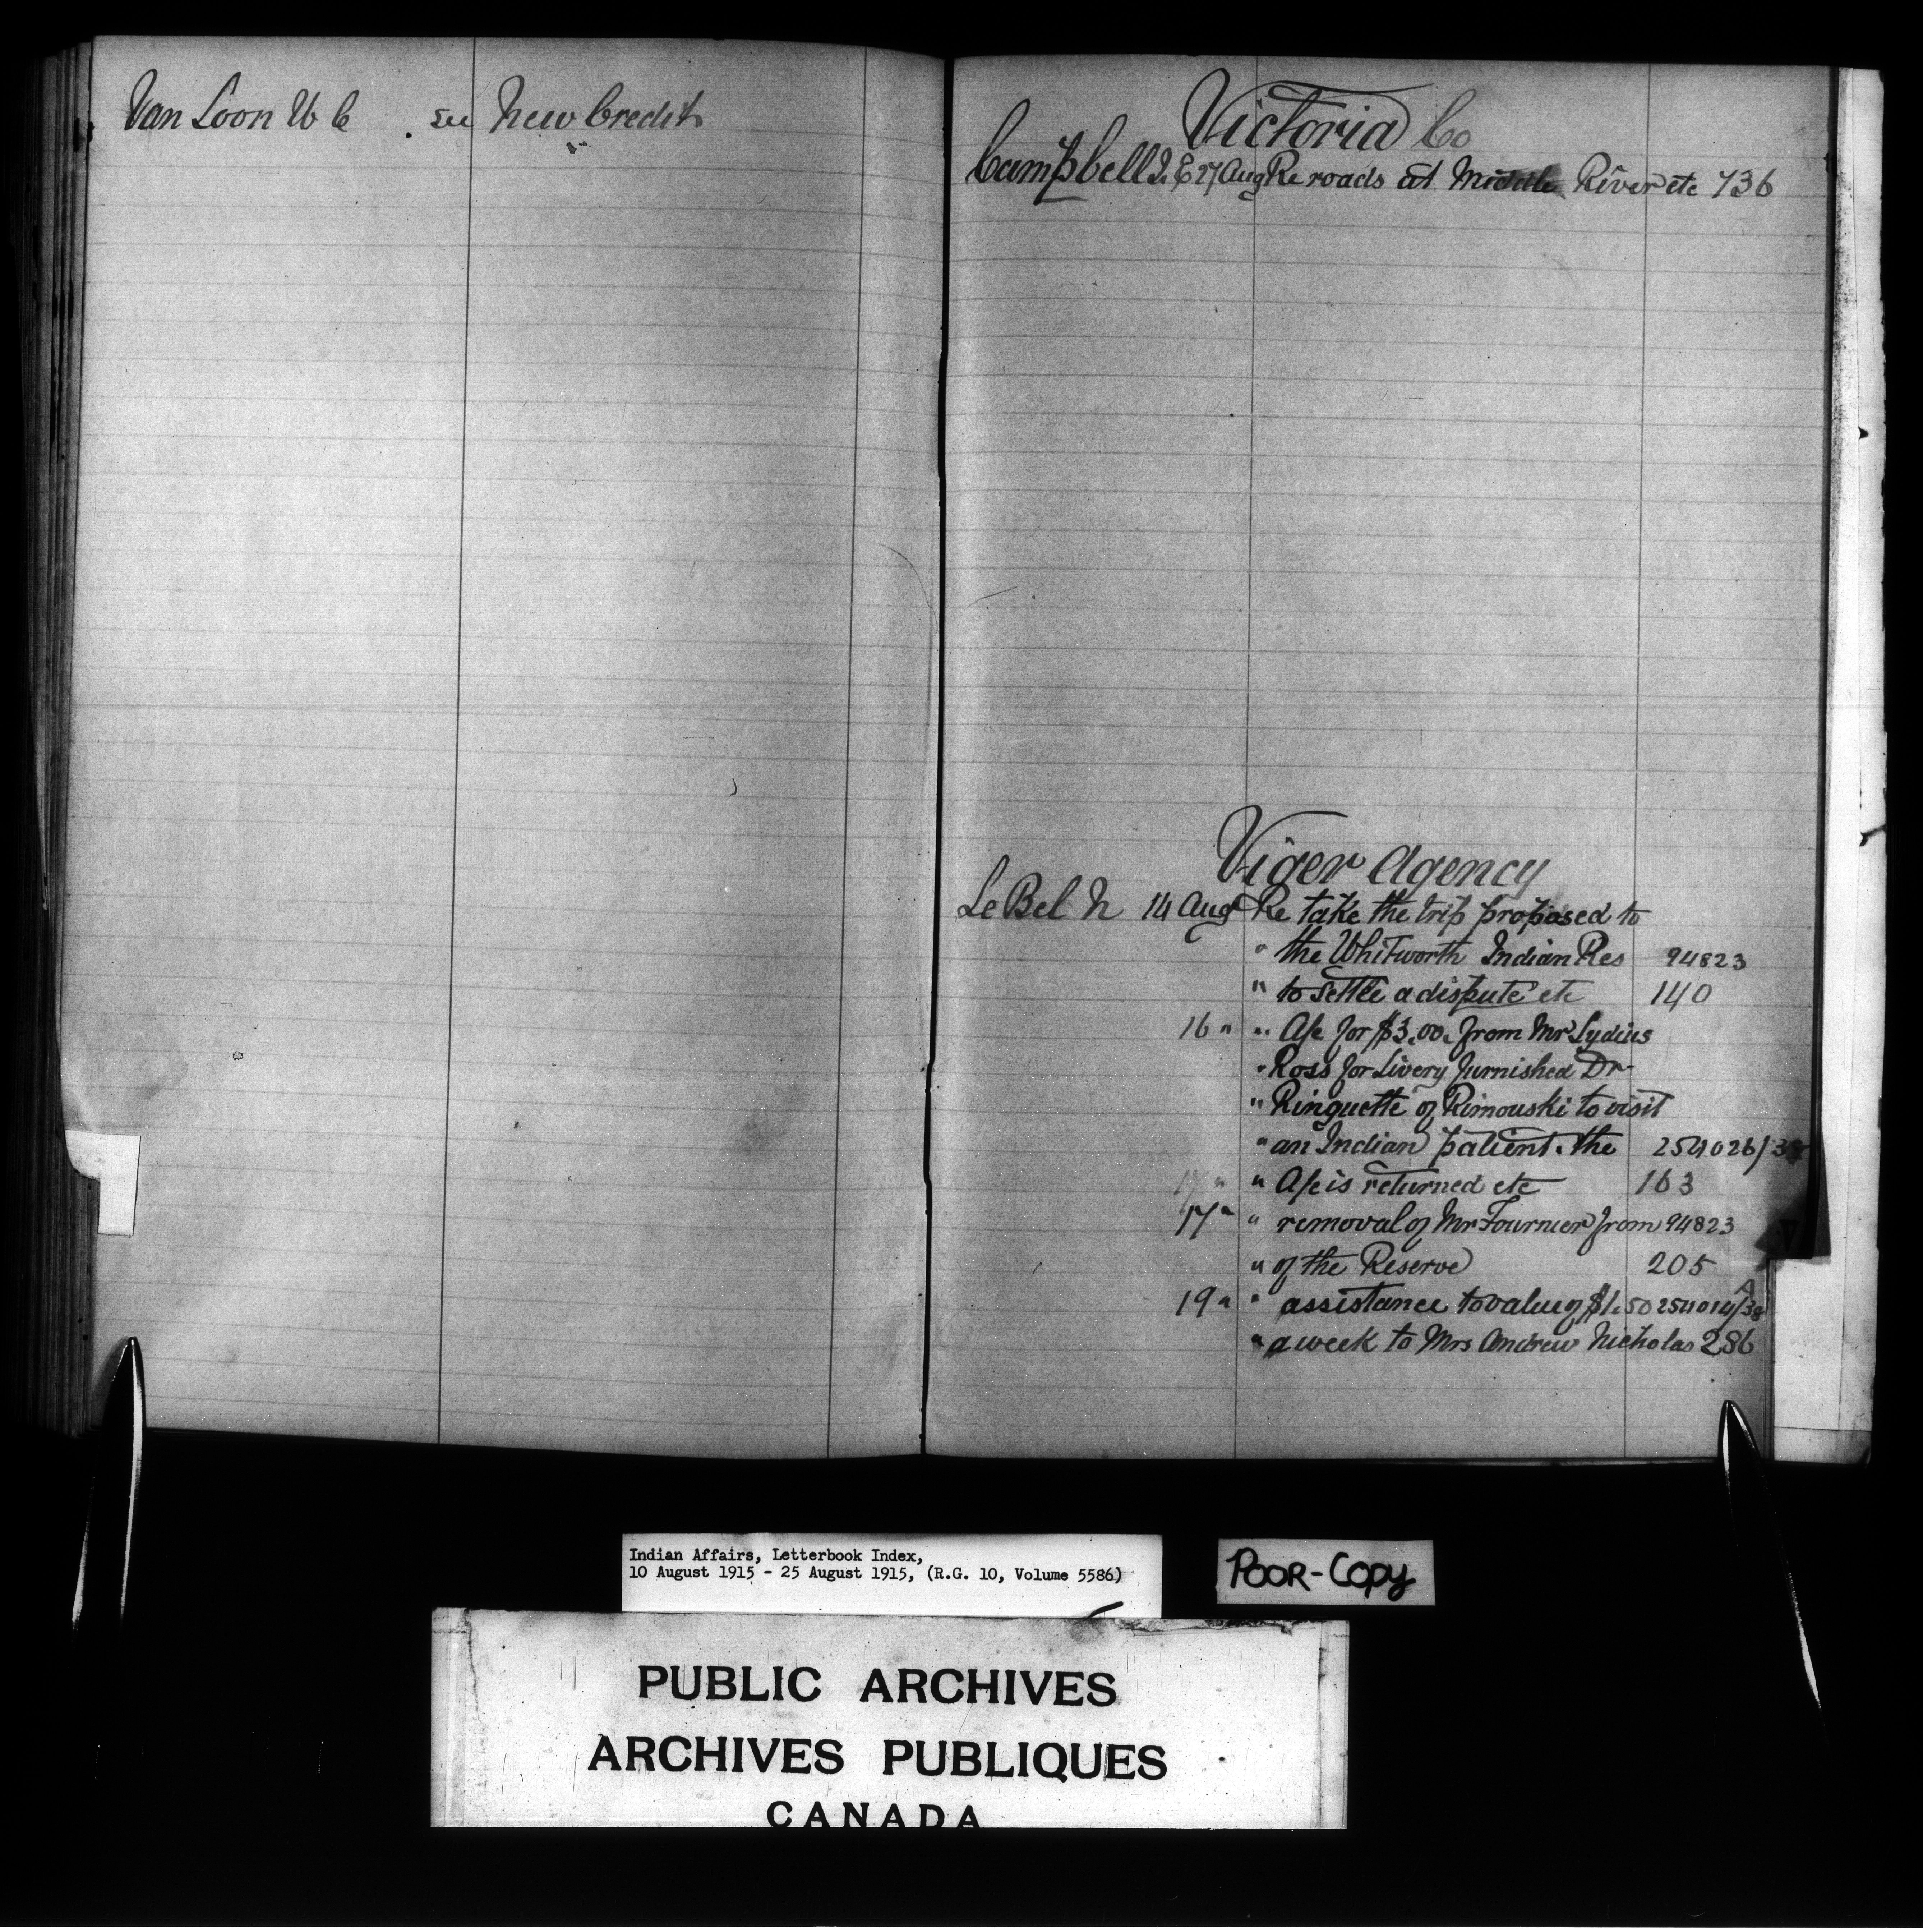 Van Loon W C see New Credit
Victoria Co
Campbell J. E 27 Aug Re roads at Middle River etc 736
Viger Agency
Le Bel N 14 Aug Re take the trip proposed to
" the Whitworth Indian Res 94823
" to settle a dispute etc 140
16 " " A/c for $3.00. from Mr Lydius
" Ross for Livery furnished Dr
" Ringuette of Rimouski to visit
" an Indian patient. the 254026/38
17 " " A/c is returned etc 163
17 " " removal of Mr Fournier from 94823
" of the Reserve 205
19 " " assistance to value of $1.50 254014/38 A
" a week to Mrs Andrew Nicholas 286
Indian Affairs, Letterbook Index,
10 August 1915 - 25 August 1915, (R.G. 10, Volume 5586)
POOR-COPY
PUBLIC ARCHIVES
ARCHIVES PUBLIQUES
CANADA